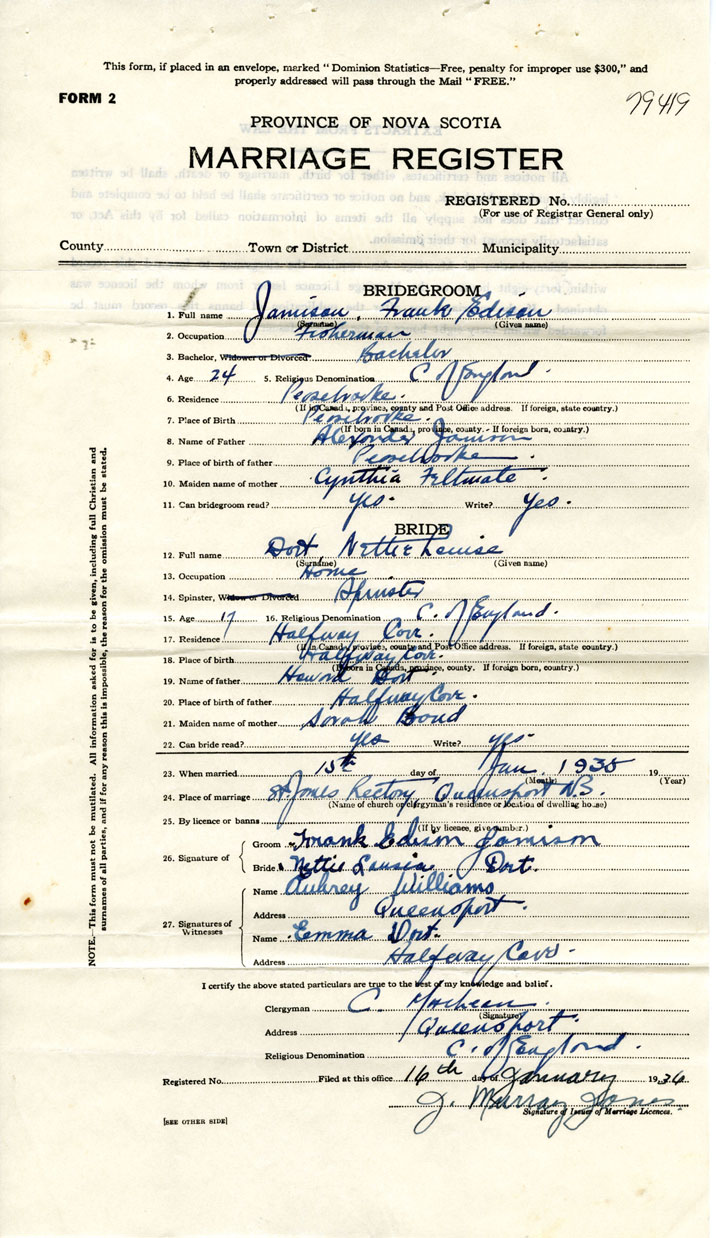 This form, if placed in an envelope, marked "Dominion Statistics—Free, penalty for improper use $300," and
properly addressed will pass through the Mail "FREE."
FORM 2
79419
PROVINCE OF NOVA SCOTIA
MARRIAGE REGISTER
REGISTERED No.
(For use of Registrar General only)
County Town or District Municipality
BRIDEGROOM
1. Full name Jamison, Frank Edison
(Surname) (Given name)
2. Occupation Fisherman
3. Bachelor, Widower or Divorced Bachelor
4. Age 24 5. Religious Denomination C of England.
6. Residence
(If in Canada, province, county and Post Office address. If foreign, state country.)
7. Place of Birth
(If born in Canada, province, county. If foreign born, country.)
8. Name of Father Alexander Jamison
9. Place of birth of father
10. Maiden name of mother Cynthia Feltmate
11. Can bridegroom read? yes. Write? Yes.
BRIDE
12. Full name Dort, Nettie Louise
(Surname) (Given name)
13. Occupation Home
14. Spinster, Widow or Divorced Spinster
15. Age 17 16. Religious Denomination C. of England.
17. Residence Halfway Cove.
(If in Canada, province, county and Post Office address. If foreign, state country.)
18. Place of birth Halfway Cove.
(If born in Canada, province, county. If foreign born, country.)
19. Name of father Howard Dort
20. Place of birth of father Halfway Cove.
21. Maiden name of mother Sarah Bond
22. Can bride read? yes Write? yes
23. When married 15th day of Jan. 1935 19
(Month) (Year)
24. Place of marriage Rectory Queensport N.S.
(Name of church or clergyman's residence or location of dwelling house)
25. By licence or banns
(If by licence, give number.)
26. Signature of
Groom Frank Edison Jamison
Bride Nettie Dort.
27. Signatures of
Witnesses
Name Aubrey Williams
Address Queensport.
Name Emma Dort.
Address Halfway Cove.
NOTE.—This form must not be mutilated. All information asked for is to be given, including full Christian and
surnames of all parties, and if for any reason this is impossible, the reason for the omission must be stated.
I certify the above stated particulars are true to the best of my knowledge and belief.
Clergyman C.
(Signature)
Address Queensport.
Religious Denomination C. of England.
Registered No. Filed at this office 16th day of January 1936
J. Murray Jones
Signature of Issuer of Marriage Licences.
[SEE OTHER SIDE]